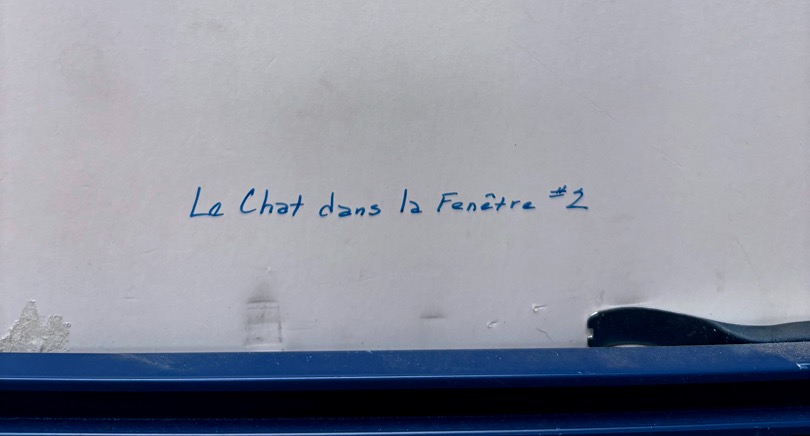 Le Chat dans la Fenêtre #2